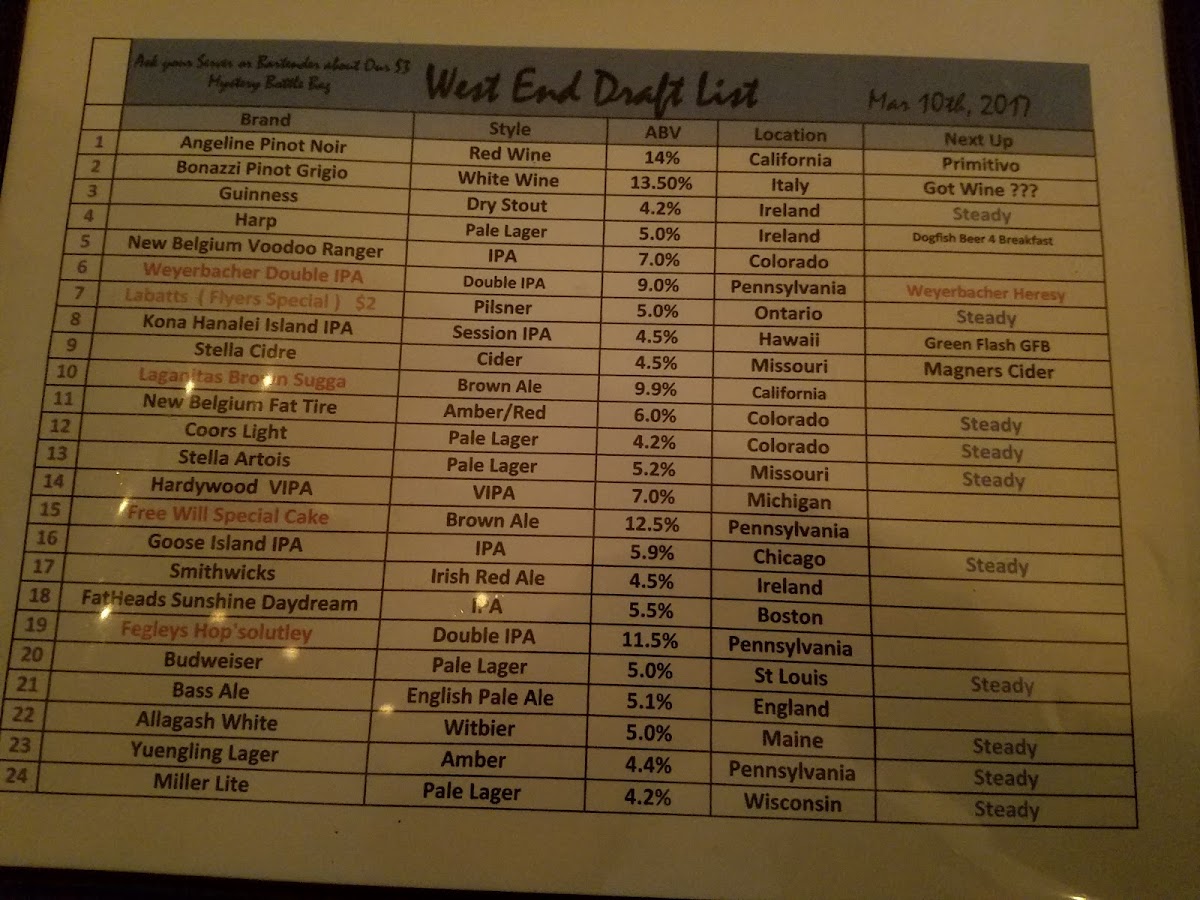 Ask your Server or Bartender about Our $3
Mystery Bottle Bag
West End Draft List
Mar 10th, 2017
Brand Style ABV Location Next Up
1 Angeline Pinot Noir Red Wine 14% California Primitivo
2 Bonazzi Pinot Grigio White Wine 13.50% Italy Got Wine ???
3 Guinness Dry Stout 4.2% Ireland Steady
4 Harp Pale Lager 5.0% Ireland Dogfish Beer 4 Breakfast
5 New Belgium Voodoo Ranger IPA 7.0% Colorado
6 Weyerbacher Double IPA Double IPA 9.0% Pennsylvania Weyerbacher Heresy
7 Labatts ( Flyers Special ) $2 Pilsner 5.0% Ontario Steady
8 Kona Hanalei Island IPA Session IPA 4.5% Hawaii Green Flash GFB
9 Stella Cidre Cider 4.5% Missouri Magners Cider
10 Laganitas Brown Sugga Brown Ale 9.9% California
11 New Belgium Fat Tire Amber/Red 6.0% Colorado Steady
12 Coors Light Pale Lager 4.2% Colorado Steady
13 Stella Artois Pale Lager 5.2% Missouri Steady
14 Hardywood VIPA VIPA 7.0% Michigan
15 Free Will Special Cake Brown Ale 12.5% Pennsylvania
16 Goose Island IPA IPA 5.9% Chicago Steady
17 Smithwicks Irish Red Ale 4.5% Ireland
18 FatHeads Sunshine Daydream IPA 5.5% Boston
19 Fegleys Hop'solutley Double IPA 11.5% Pennsylvania
20 Budweiser Pale Lager 5.0% St Louis Steady
21 Bass Ale English Pale Ale 5.1% England
22 Allagash White Witbier 5.0% Maine Steady
23 Yuengling Lager Amber 4.4% Pennsylvania Steady
24 Miller Lite Pale Lager 4.2% Wisconsin Steady